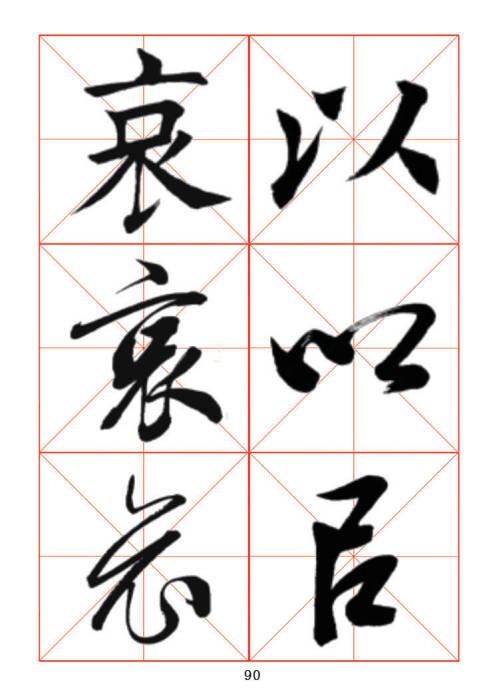 以以㠯
哀哀哀
90